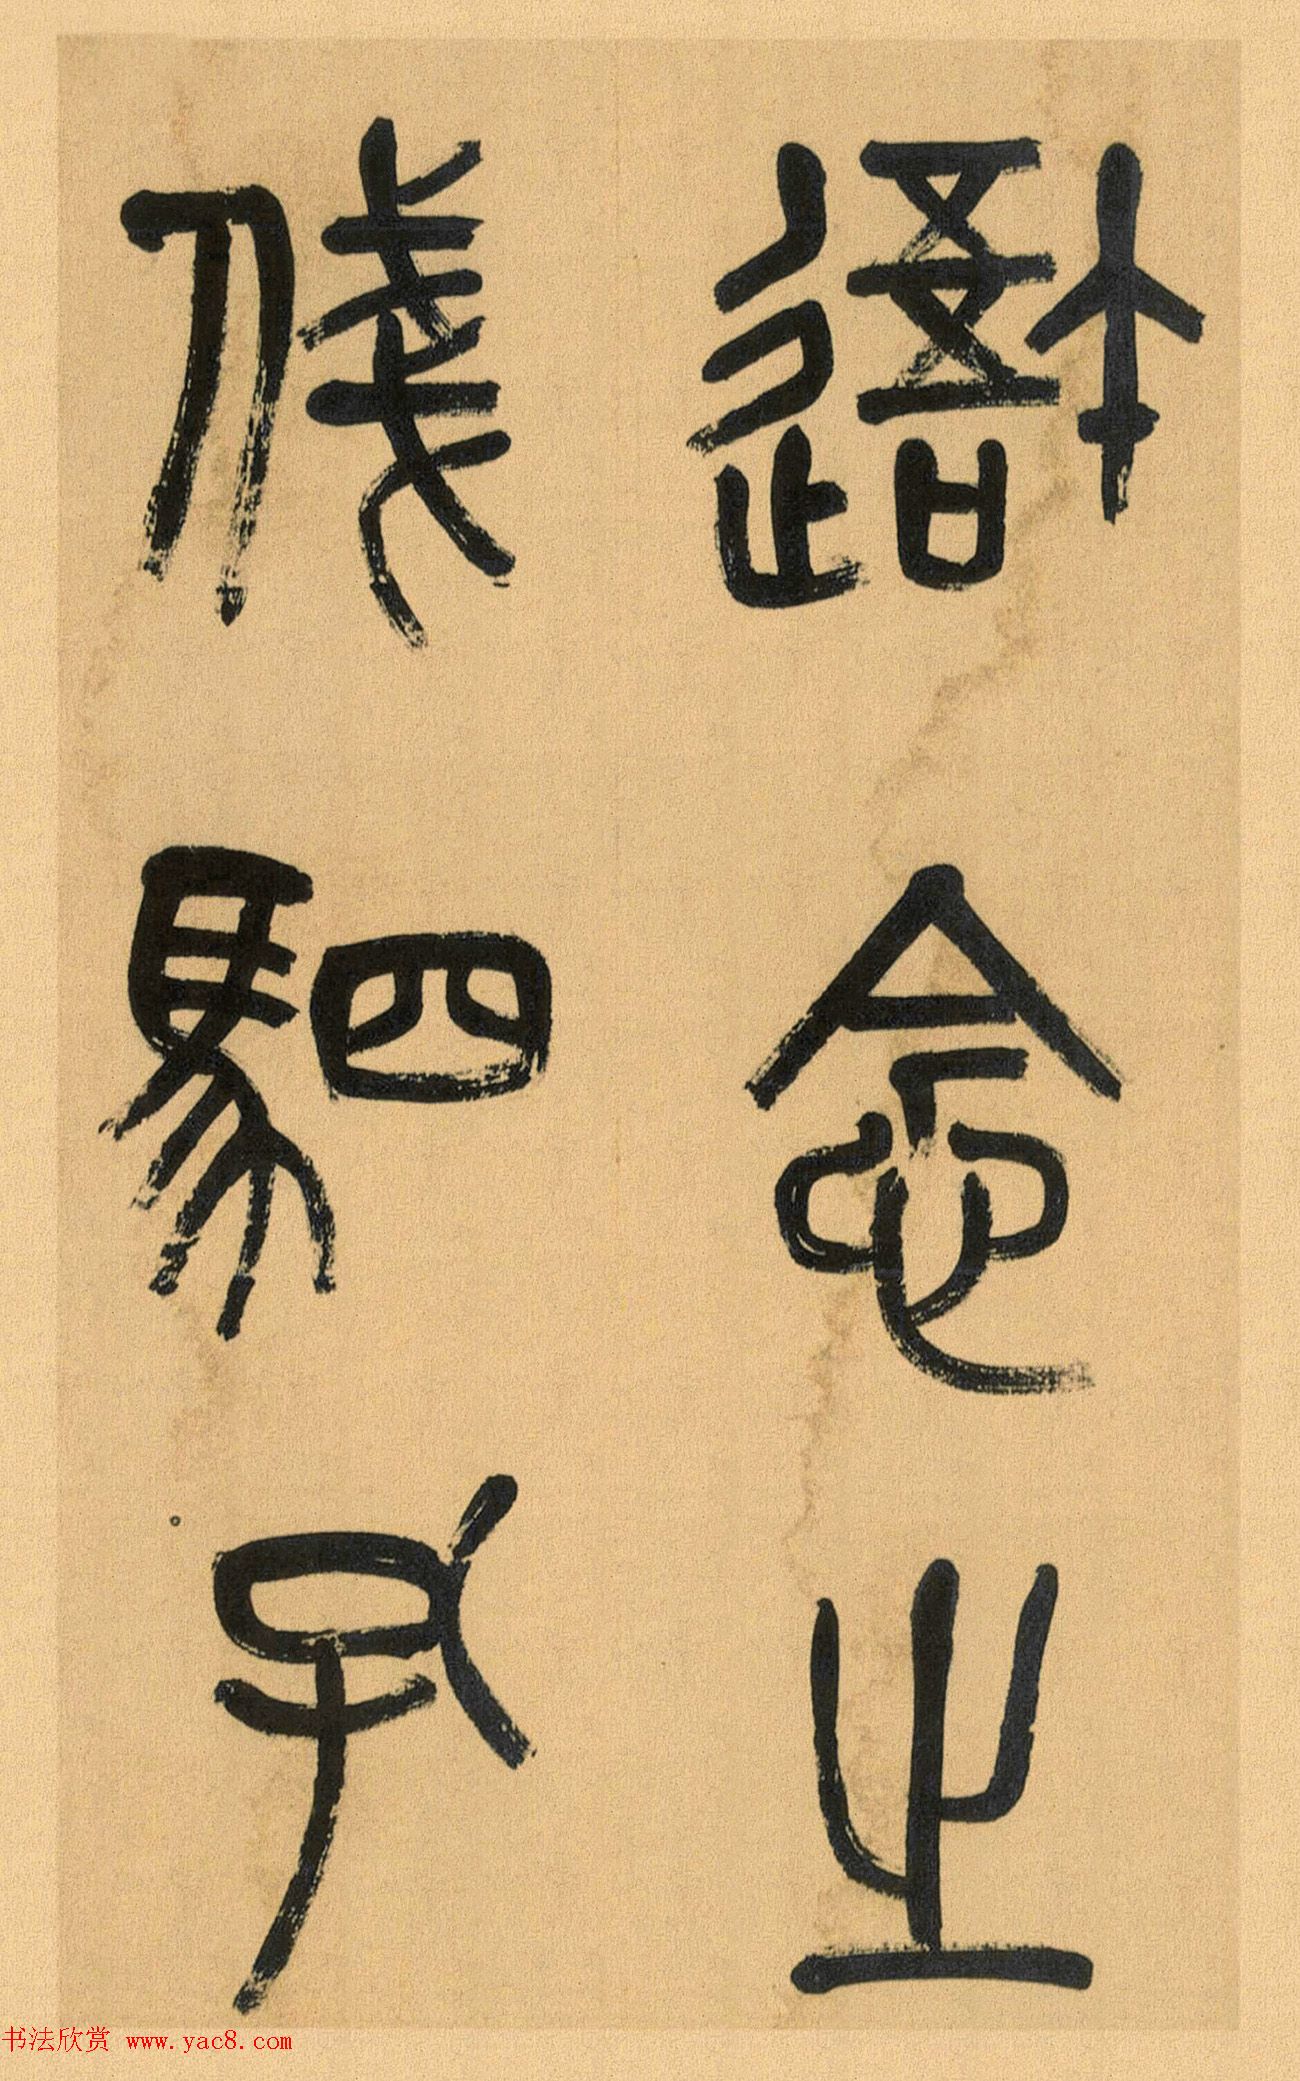 念之
俴駟孔
书法欣赏 www.yac8.com